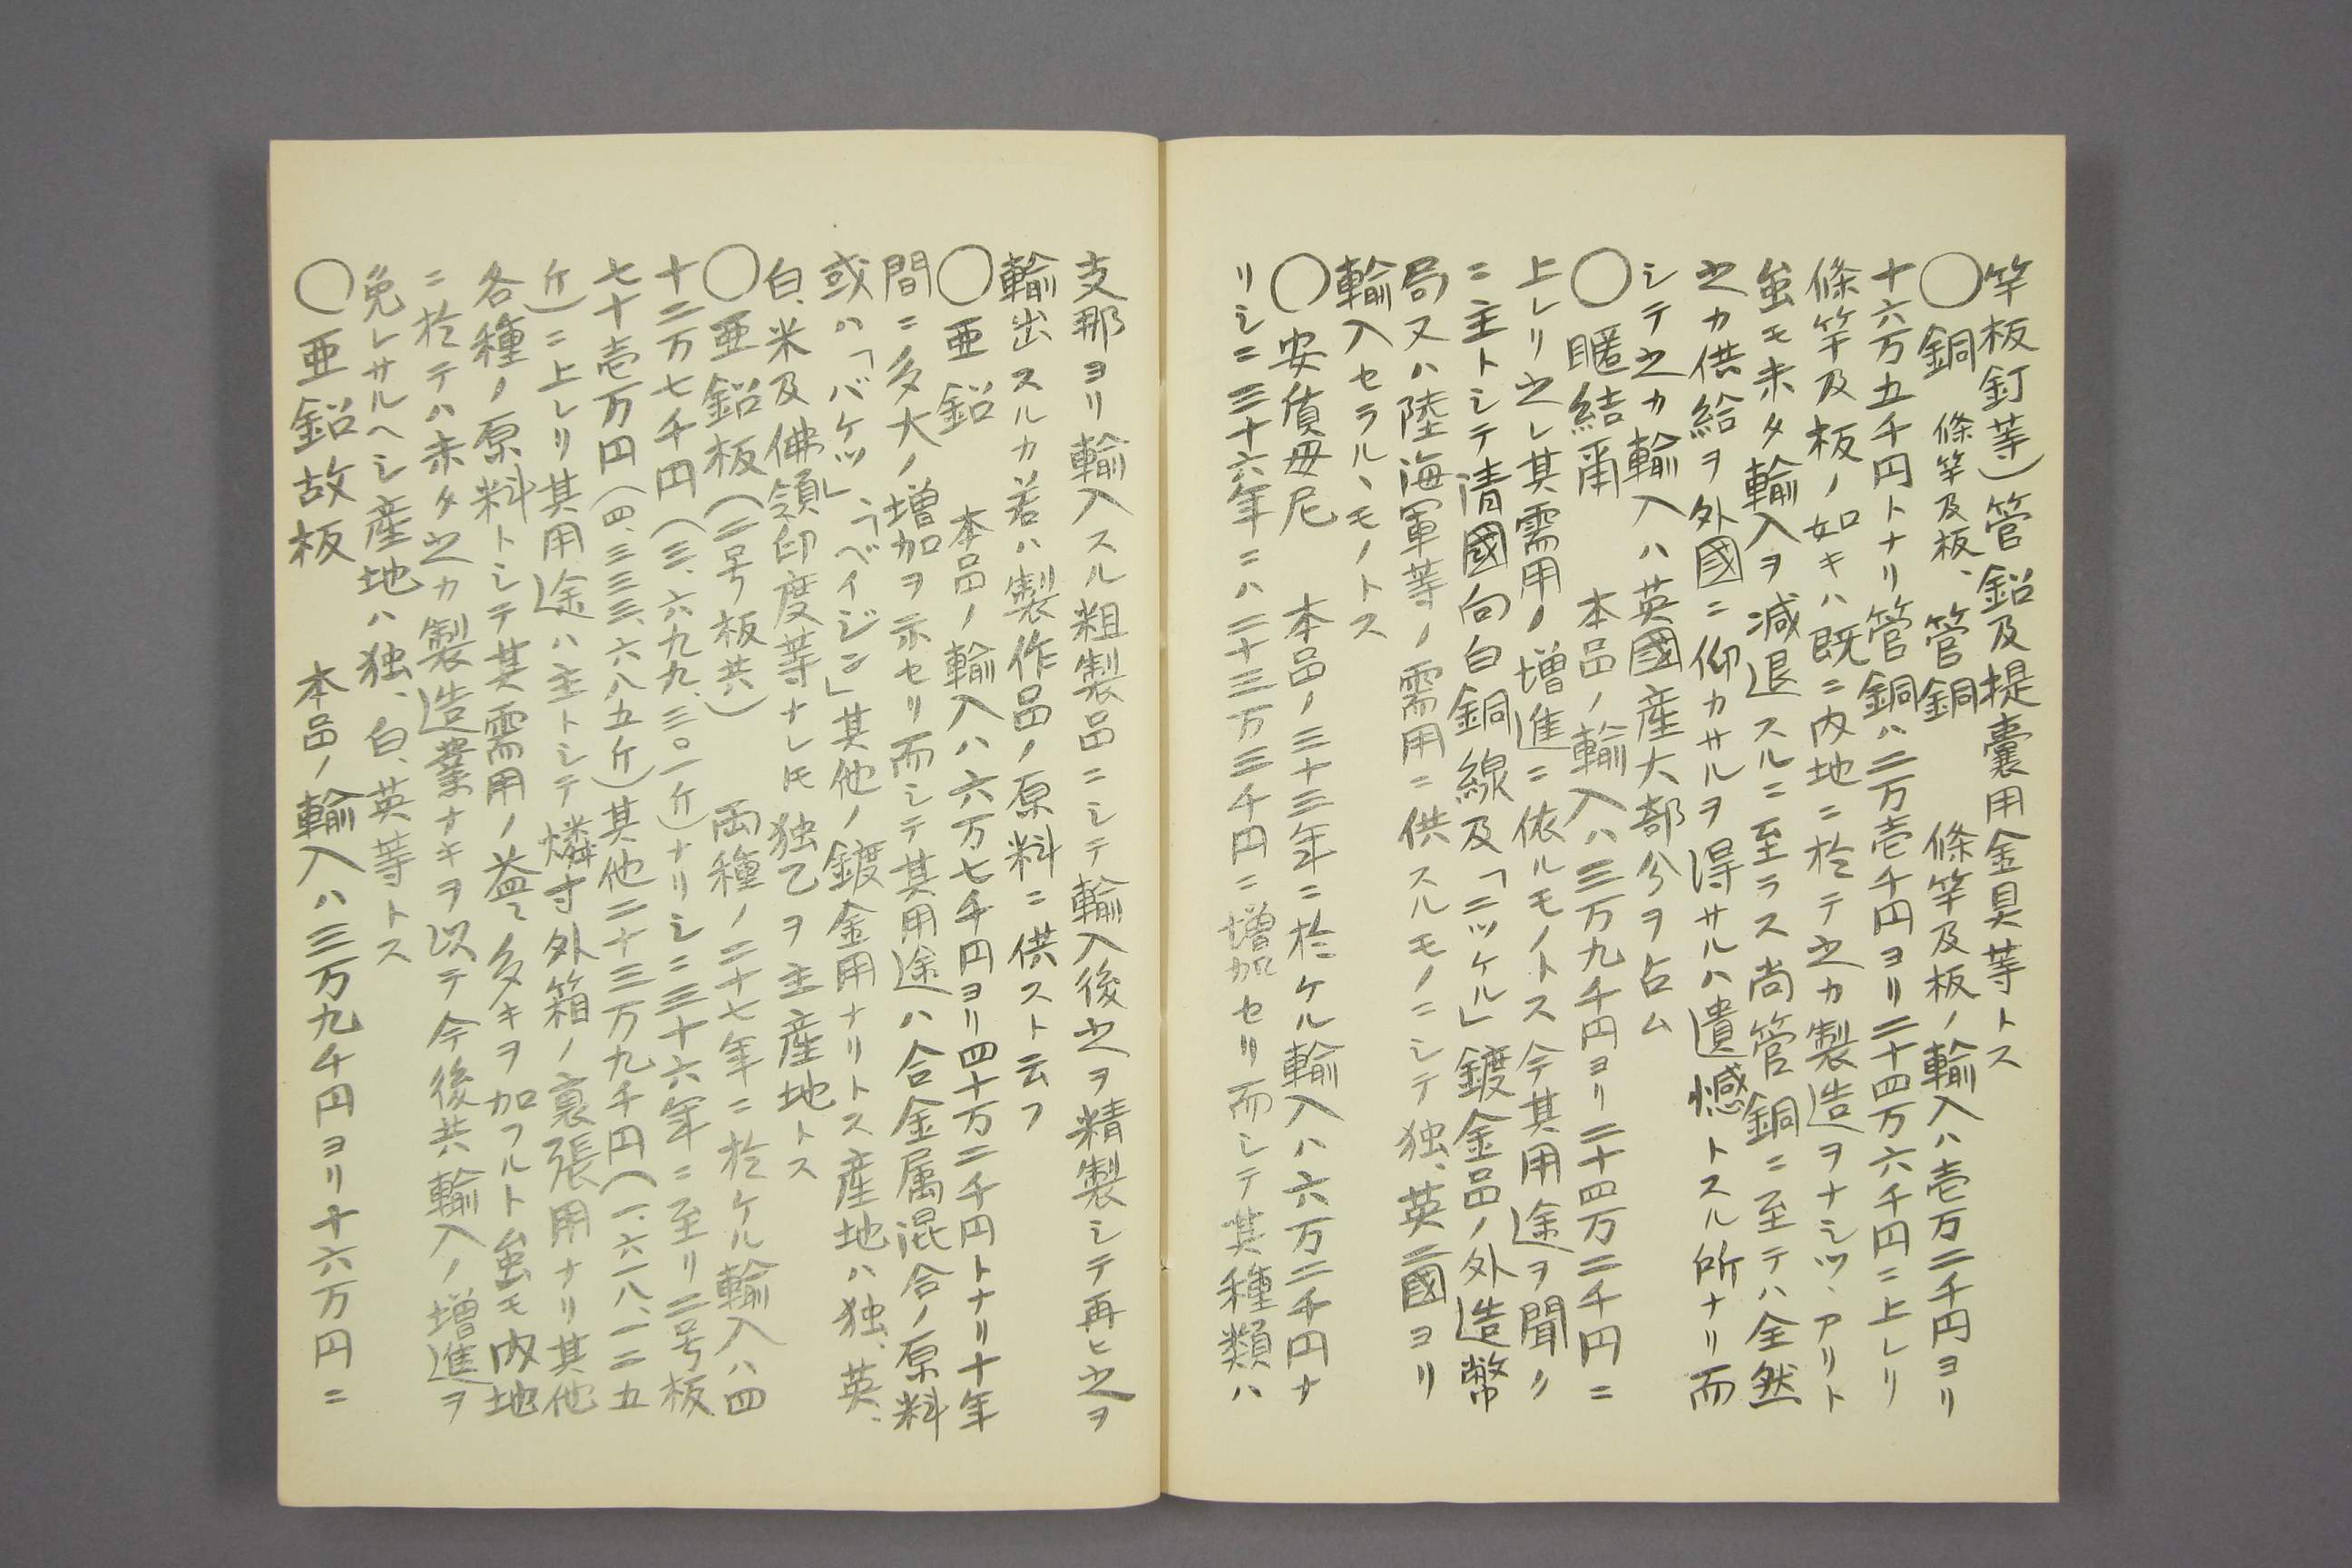 竿板釘等)管鉛及提嚢用金具等トス
〇銅 條竿及板、管銅 條竿及板ノ輸入ハ壱万二千円ヨリ
十六万五千円トナリ管銅ハ二万壱千円ヨリ二十四万六千円ニ上レリ
條竿及板ノ如キハ既ニ内地ニ於テ之カ製造ヲナシツヽアリト
虽モ未タ輸入ヲ減退スルニ至ラス尚管銅ニ至テハ全然
之カ供給ヲ外國ニ仰カサルヲ得サルハ遺憾トスル所ナリ而
シテ之カ輸入ハ英國産大部分ヲ占ム
〇暱結甭 本品ノ輸入ハ三万九千円ヨリ二十四万二千円ニ
上レリ之レ其需用ノ増進ニ依ルモノトス今其用途ヲ聞ク
ニ主トシテ清國向白銅線及「ニッケル」鍍金品ノ外造幣
局又ハ陸海軍等ノ需用ニ供スルモノニシテ独、英二國ヨリ
輸入セラルヽモノトス
〇安質母尼 本品ノ三十三年ニ於ケル輸入ハ六万二千円ナ
リシニ三十六年ニハ二十三万三千円ニ増加セリ而シテ其種類ハ
支那ヨリ輸入スル粗製品ニシテ輸入後之ヲ精製シテ再ヒ之ヲ
輸出スルカ若ハ製作品ノ原料ニ供スト云フ
〇亜鉛 本品ノ輸入ハ六万七千円ヨリ四十万二千円トナリ十年
間ニ多大ノ増加ヲ示セリ而シテ其用途ハ合金属混合ノ原料
或ハ「バケツ」、「ベイジン」其他ノ鍍金用ナリトス産地ハ独、英、
白、米及佛領印度等ナレ𪜈独乙ヲ主産地トス
〇亜鉛板(二号板共) 両種ノ二十七年ニ於ケル輸入ハ四
十二万七千円(三、六九九、三〇一斤)ナリシニ三十六年ニ至リ二号板
七十壱万円(四、三三三、六八五斤)其他二十三万九千円(一、六一八、一二五
斤)ニ上レリ其用途ハ主トシテ燐寸外箱ノ裏張用ナリ其他
各種ノ原料トシテ其需用ノ益々多キヲ加フルト虽モ内地
ニ於テハ未タ之カ製造業ナキヲ以テ今後共輸入ノ増進ヲ
免レサルヘシ産地ハ独、白、英等トス
〇亜鉛故板 本品ノ輸入ハ三万九千円ヨリ十六万円ニ